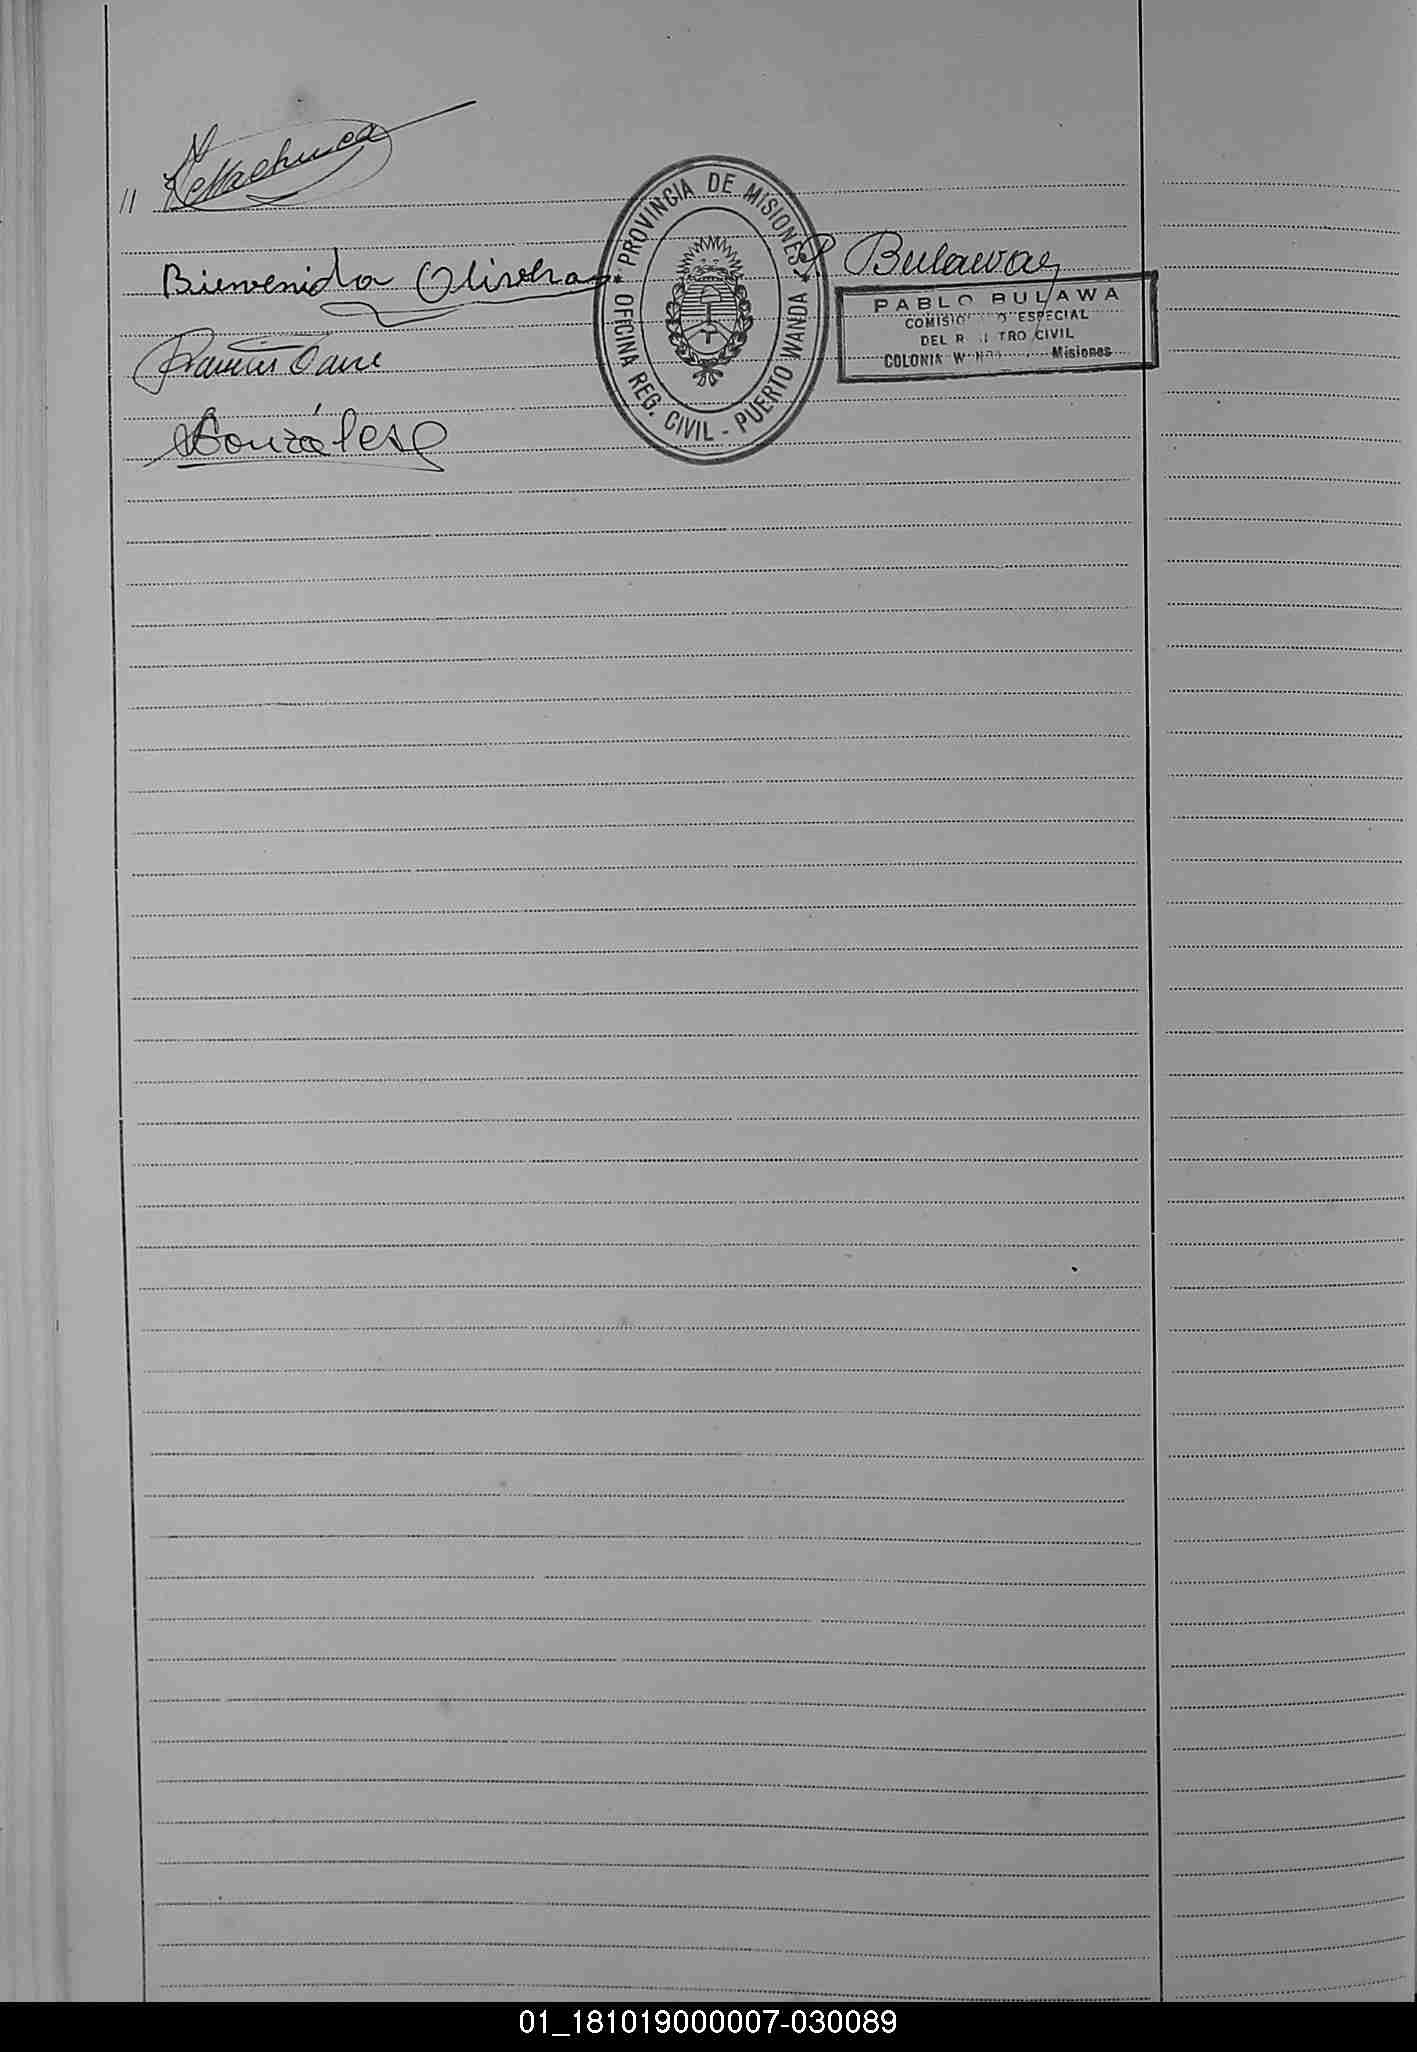 // Machuca
Bienvenida Olivera
González
PROVINCIA DE MISIONES
OFICINA REG. CIVIL - PUERTO WANDA
P Bulawa
PABLO BULAWA
COMISIO O ESPECIAL
DEL R TRO CIVIL
COLONIA W Misiones
01_181019000007-030089